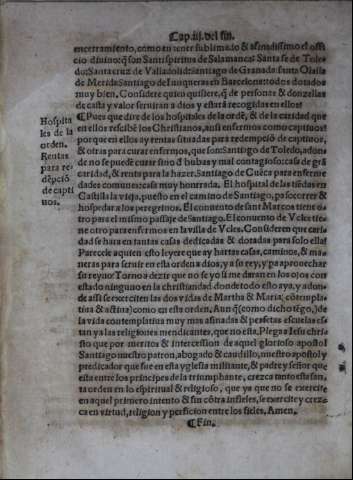 Cap.iij.del fin.
encerramiento, como en tener sublimado & afinadissimo el offi
cio diuino: q̃ son Santispiritus de Salamanca: Santa fe de Tole
do: Santa cruz de Valladolid: Santiago de Granada: santa Olalla
de Merida: Santiago de Iunqueras en Barcelona: todos dotados
muy bien. Considere quien quisiere, q̃ de personas & donzellas
de casta y valor seruiran a dios y estarã recogidas en ellos?
¶ Pues que dire de los hospitales de la ordẽ, & de la caridad que
en ellos rescibẽ los Christianos, ansi enfermos como captiuos?
por que en ellos ay rentas situadas para redempciõ de captiuos,
& otras para curar enfermos, que son: Santiago de Toledo, adon
de no se puedẽ curar sino d̃ bubas y mal contagioso: casa de grã
caridad, & renta para la hazer. Santiago de Cuẽca para enferme
dades comunes: casa muy honrrada. El hospital de las tiẽdas en
Castilla la vieja, puesto en el camino de Santiago, pa socorrer &
hospedar a los peregrinos. El conuento de sant Marcos tiene o
tro para el mismo passaje de Santiago. El conuento de Vcles tie-
ne otro para enfermos en la villa de Vcles. Consideren que cari-
dad se hara en tantas casas dedicadas & dotadas para solo ella?
Parecele a quien esto leyere que ay hartas casas, caminos, & ma-
neras para seruir en esta orden a dios, y a su rey, y pa aprouechar
su reyno? Torno a dezir que no se yo si me daran en los ojos con
estado ninguno en la christiandad donde todo esto aya, y adon-
de assi se exerciten las dos vidas de Martha & Maria (cõtempla-
tiua & actiua) como en esta orden. Aun q̃ (como dicho tẽgo,) de
la vida contemplatiua muy mas afinadas & perfetas escuelas es-
tan y a las religiones mendicantes, que no esta, Plega a Iesu chri-
sto que por meritos & intercession de aquel glorioso apostol
Santiago nuestro patron, abogado & caudillo, nuestro apostol y
predicador que fue en esta yglesia militante, & padre y señor que
esta entre los principes de la triumphante, crezca tanto este san-
ta orden en lo espiritual & religioso, que ya que no se exercite
en aquel primero intento & fin cõtra infieles, se exercite y crez-
ca en virtud, religion y perficion entre los fieles. Amen.
¶ Fin.
Hospita
les de la
orden.
Rentas
para re-
dẽpciõ
de capti
uos.